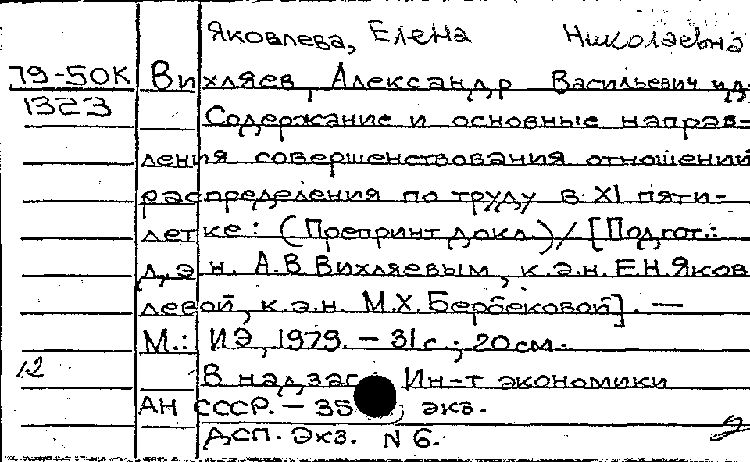 Яковлева, Елена Николаевна
79-50К Вихляев, Александр Васильевич и др.
1323 Содержание и основные направ-
ления совершенствования отношений
распределения по труду в XI пяти-
летке: (Препринт докл.) / [Подгот.:
д.э.н. А.В Вихляевым, к.э.н. Е.Н.Яков
левой, к.э.н. М.Х.Бербековой]. —
М.: ИЭ, 1979. - 31с.; 20см.
12 В надзаг. Ин-т экономики
АН СССР. - 35 экз.
ДСП. Экз. N 6.